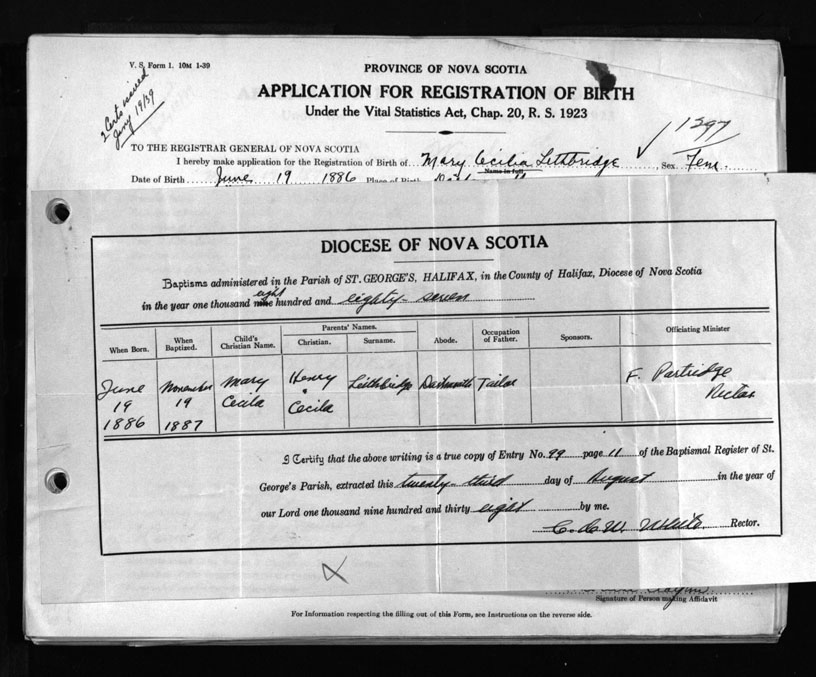 V. S. Form 1. 10M 1-39
2 Certs issued
Jany 19/39
PROVINCE OF NOVA SCOTIA
APPLICATION FOR REGISTRATION OF BIRTH
Under the Vital Statistics Act, Chap. 20, R. S. 1923
1297
TO THE REGISTRAR GENERAL OF NOVA SCOTIA
I hereby make application for the Registration of Birth of Mary Cecilia Lethbridge, Sex Fem
Name in full
Date of Birth June 19 1886 Place of Birth
DIOCESE OF NOVA SCOTIA
Baptisms administered in the Parish of ST. GEORGE'S, HALIFAX, in the County of Halifax, Diocese of Nova Scotia
in the year one thousand nine eight hundred and eighty-seven
When Born. When Baptized. Child's Christian Name. Parents' Names. Christian. Surname. Abode. Occupation of Father. Sponsors. Officiating Minister
June 19 1886 November 19 1887 Mary Cecila Henry & Cecila Leithbridge Dartmouth Tailor F. Partridge Rector
I Certify that the above writing is a true copy of Entry No. 99 page 11 of the Baptismal Register of St.
George's Parish, extracted this twenty-third day of August in the year of
our Lord one thousand nine hundred and thirty eight by me.
C. C. W. White Rector.
Signature of Person making Affidavit
For Information respecting the filling out of this Form, see Instructions on the reverse side.